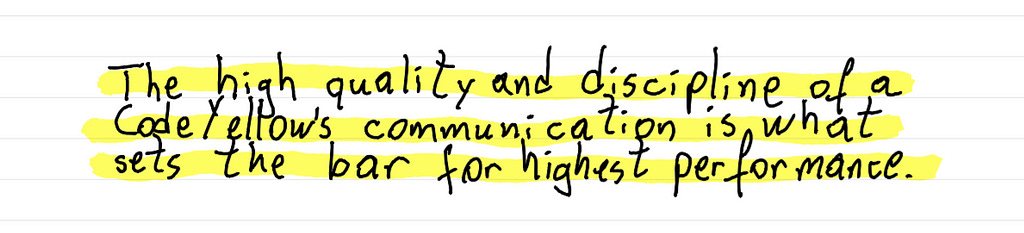 The high quality and discipline of a
CodeYellow's communication is what
sets the bar for highest performance.